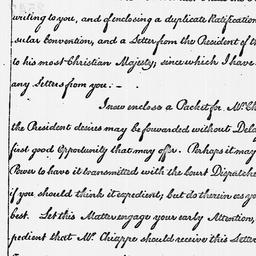 writing to you, and of enclosing a duplicate Ratification
sular Convention, and a Letter from the President of th
to his most Christian Majesty; since which I have
any Letters from you. –
I now enclose a Packet for Mr. Ch
the President desires may be forwarded without Dela
first good Opportunity that may offer. Perhaps it may
Power to have it transmitted with the Court Dispatche
if you should think it expedient; but do therein as yo
best. Let this Matter engage your early Attention,
pedient that Mr. Chiappe should receive this Letter